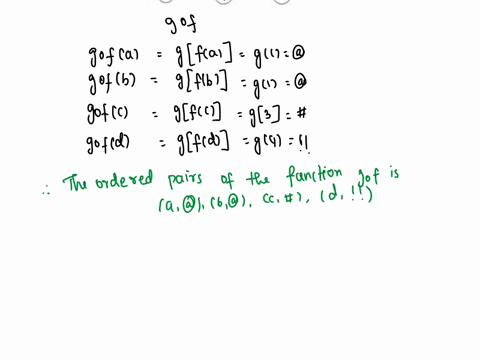 gof
gof(a) = g[f(a)] = g(1) = @
gof(b) = g[f(b)] = g(1) = @
gof(c) = g[f(c)] = g[3] = #
gof(d) = g[f(d)] = g(4) = !!
∴ The ordered pairs of the function gof is
(a,@), (b,@), (c,#), (d,!!)